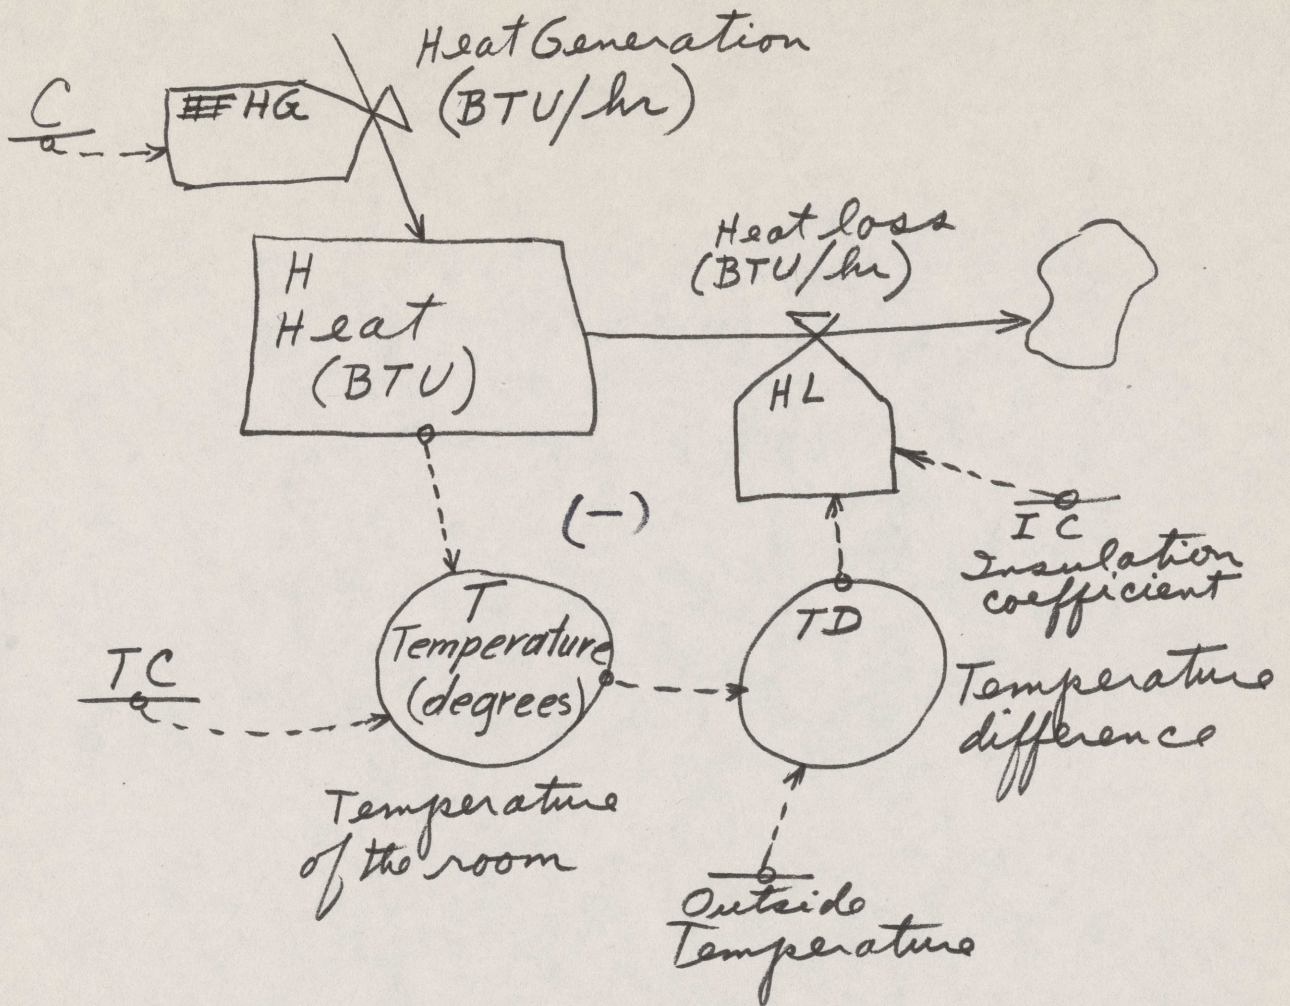 Heat Generation
(BTU/hr)
C
HG
Heat loss
(BTU/hr)
H
Heat
(BTU)
HL
(-)
IC
Insulation
coefficient
T
Temperature
(degrees)
TC
TD
Temperature
difference
Temperature
of the room
Outside
Temperature